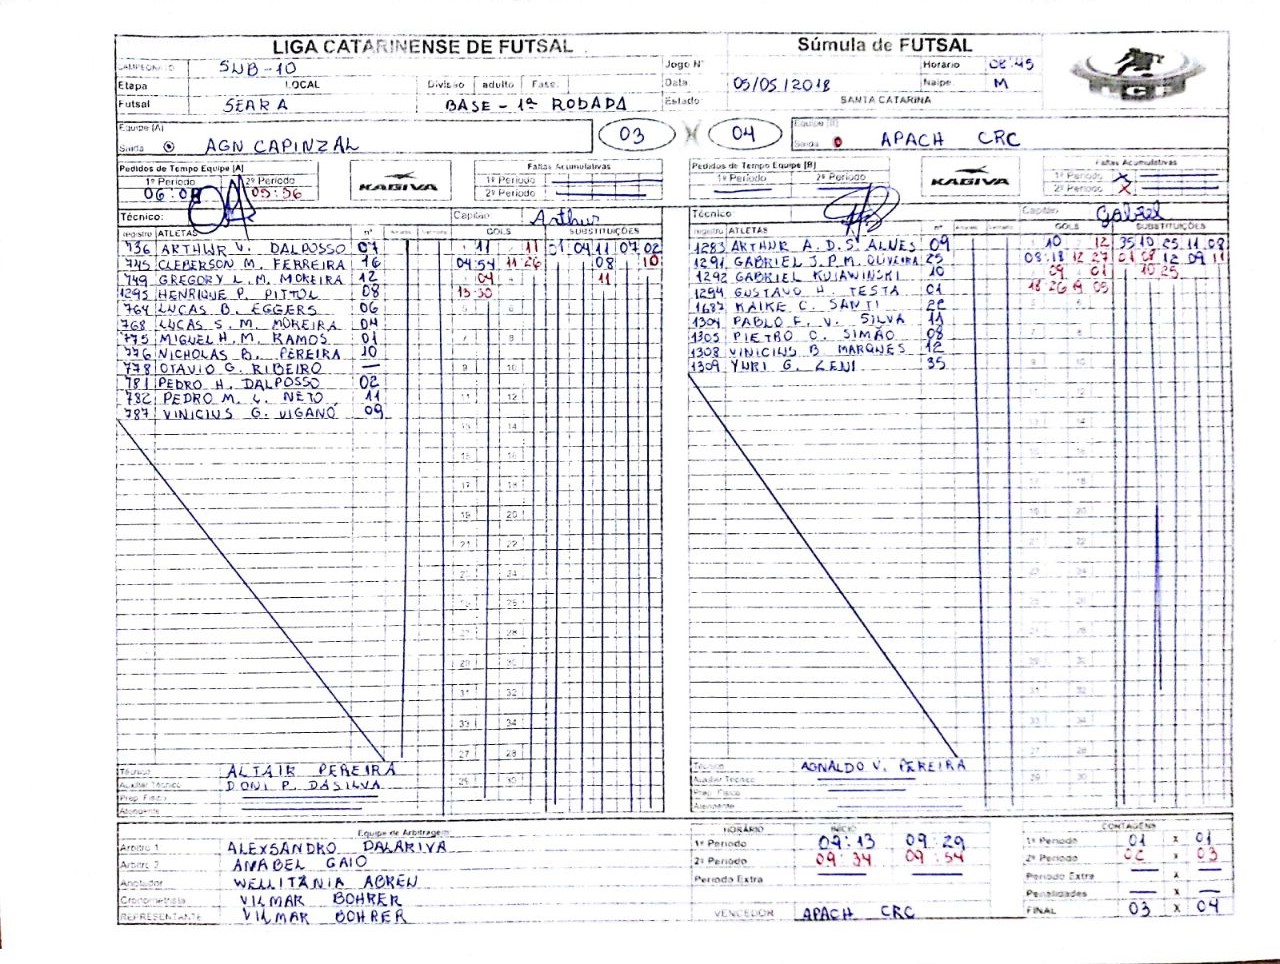 LIGA CATARINENSE DE FUTSAL
Súmula de FUTSAL
CAMPEONATO SUB-10 Jogo Nº Horário 08:45
Etapa LOCAL Divisão adulto Fase: Data 05/05/2018 Naipe M
Futsal SEARA BASE - 1ª RODADA Estado SANTA CATARINA
LCF
Equipe [A] AGN CAPINZAL 03 X 04 Equipe [B] APACH CRC
Pedidos de Tempo Equipe [A] KAGIVA Faltas Acumulativas
1º Período 2º Período 1º Período
05:56 2º Período
Pedidos de Tempo Equipe [B] KAGIVA Faltas Acumulativas
1º Período 2º Período 1º Período X
2º Período X
Técnico: Capitão Arthur
Técnico Capitão Gabriel
registro ATLETAS nº GOLS SUBSTITUIÇÕES
736 ARTHUR V. DALPOSSO 07 11 11 01 04 11 07 02
745 CLEBERSON M. FERREIRA 16 04:54 11:26 08 10
749 GREGORY L. M. MOREIRA 12 04 11
1295 HENRIQUE P. PITTOL 08 13:30
764 LUCAS B. EGGERS 06
768 LUCAS S. M. MOREIRA 04
775 MIGUEL H. M. RAMOS 01
776 NICHOLAS B. PEREIRA 10
778 OTAVIO G. RIBEIRO —
781 PEDRO H. DALPOSSO 02
782 PEDRO M. L. NETO 11
787 VINICIUS G. VIGANÓ 09
registro ATLETAS nº GOLS SUBSTITUIÇÕES
1283 ARTHUR A. D. S. ALVES 09 10 12 35 10 25 11 08
1291 GABRIEL J. P. M. OLIVEIRA 25 08:18 12 27 01 08 12 09 11
1292 GABRIEL KUIAWINSKI 10 09 01 10 25
1294 GUSTAVO H. TESTA 01 18:26 19 05
1687 KAIKE C. SANTI 22
1304 PABLO F. V. SILVA 11
1305 PIETRO O. SIMÃO 08
1308 VINICIUS B MARQUES 12
1309 YURI G. ZENI 35
Técnico ALTAIR PEREIRA
Auxiliar Técnico DONI P. DASILVA
Prep. Físico
Atendente
Técnico AGNALDO V. PEREIRA
Auxiliar Técnico
Prep. Físico
Atendente
Equipe de Arbitragem
Árbitro 1 ALEXSANDRO DALARIVA
Árbitro 2 ANABEL GAIO
Anotador WELLITANIA ABREU
Cronometrista VILMAR BOHRER
REPRESENTANTE VILMAR BOHRER
HORÁRIO INÍCIO
1º Período 09:13 09:29
2º Período 09:34 09:54
Período Extra
VENCEDOR APACH CRC
CONTAGENS
1º Período 01 x 01
2º Período 02 x 03
Período Extra x
Penalidades x
FINAL 03 X 04